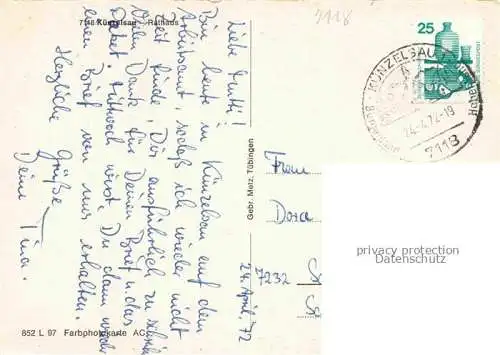 7118 Künzelsau - Rathaus
7118
Liebe Mutti!
Bin heute in Künzelsau auf dem
Arbeitsamt, sodaß ich wieder nicht
Zeit finde, Dir ausführlich zu schreiben
Vielen Dank für Deinen Brief u. das
Paket. Mittwoch wirst Du dann wieder
einen Brief von uns erhalten.
Herzliche Grüße
Deine Tina.
24. April 72
852 L 97 Farbphotokarte AC
Gebr. Metz, Tübingen
25
KÜNZELSAU
24.4.72-19
7118
Frau
Dora
7232
privacy protection
Datenschutz